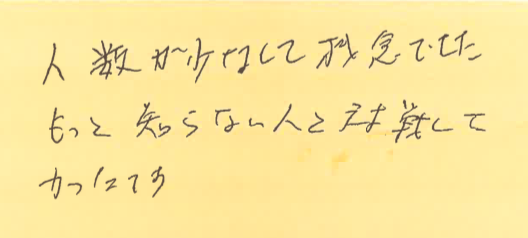 人数が少なくて残念でした
もっと知らない人と対戦して
かったです